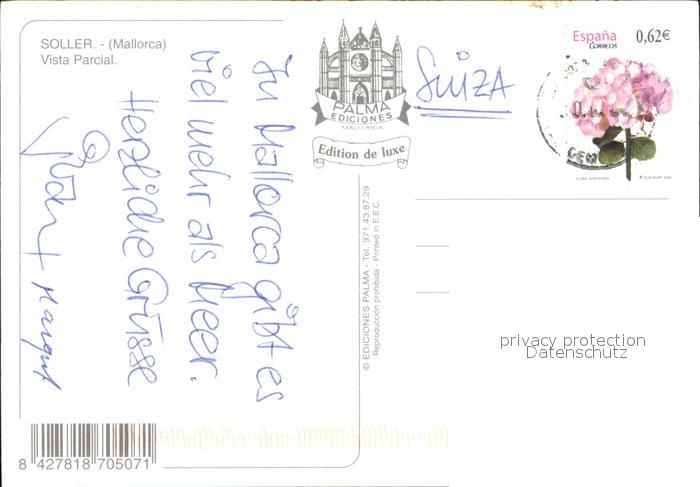 SOLLER. - (Mallorca)
Vista Parcial.
PALMA
EDICIONES
MALLORCA
Edition de luxe
SUIZA
España
CORREOS
0,62€
In Mallorca gibt es
viel mehr als Meer.
Herzliche Grüsse
+ Margrit
© EDICIONES PALMA - Tel. 971.43.87.29
Reproducción prohibida - Printed in E.E.C.
privacy protection
Datenschutz
8 427818 705071